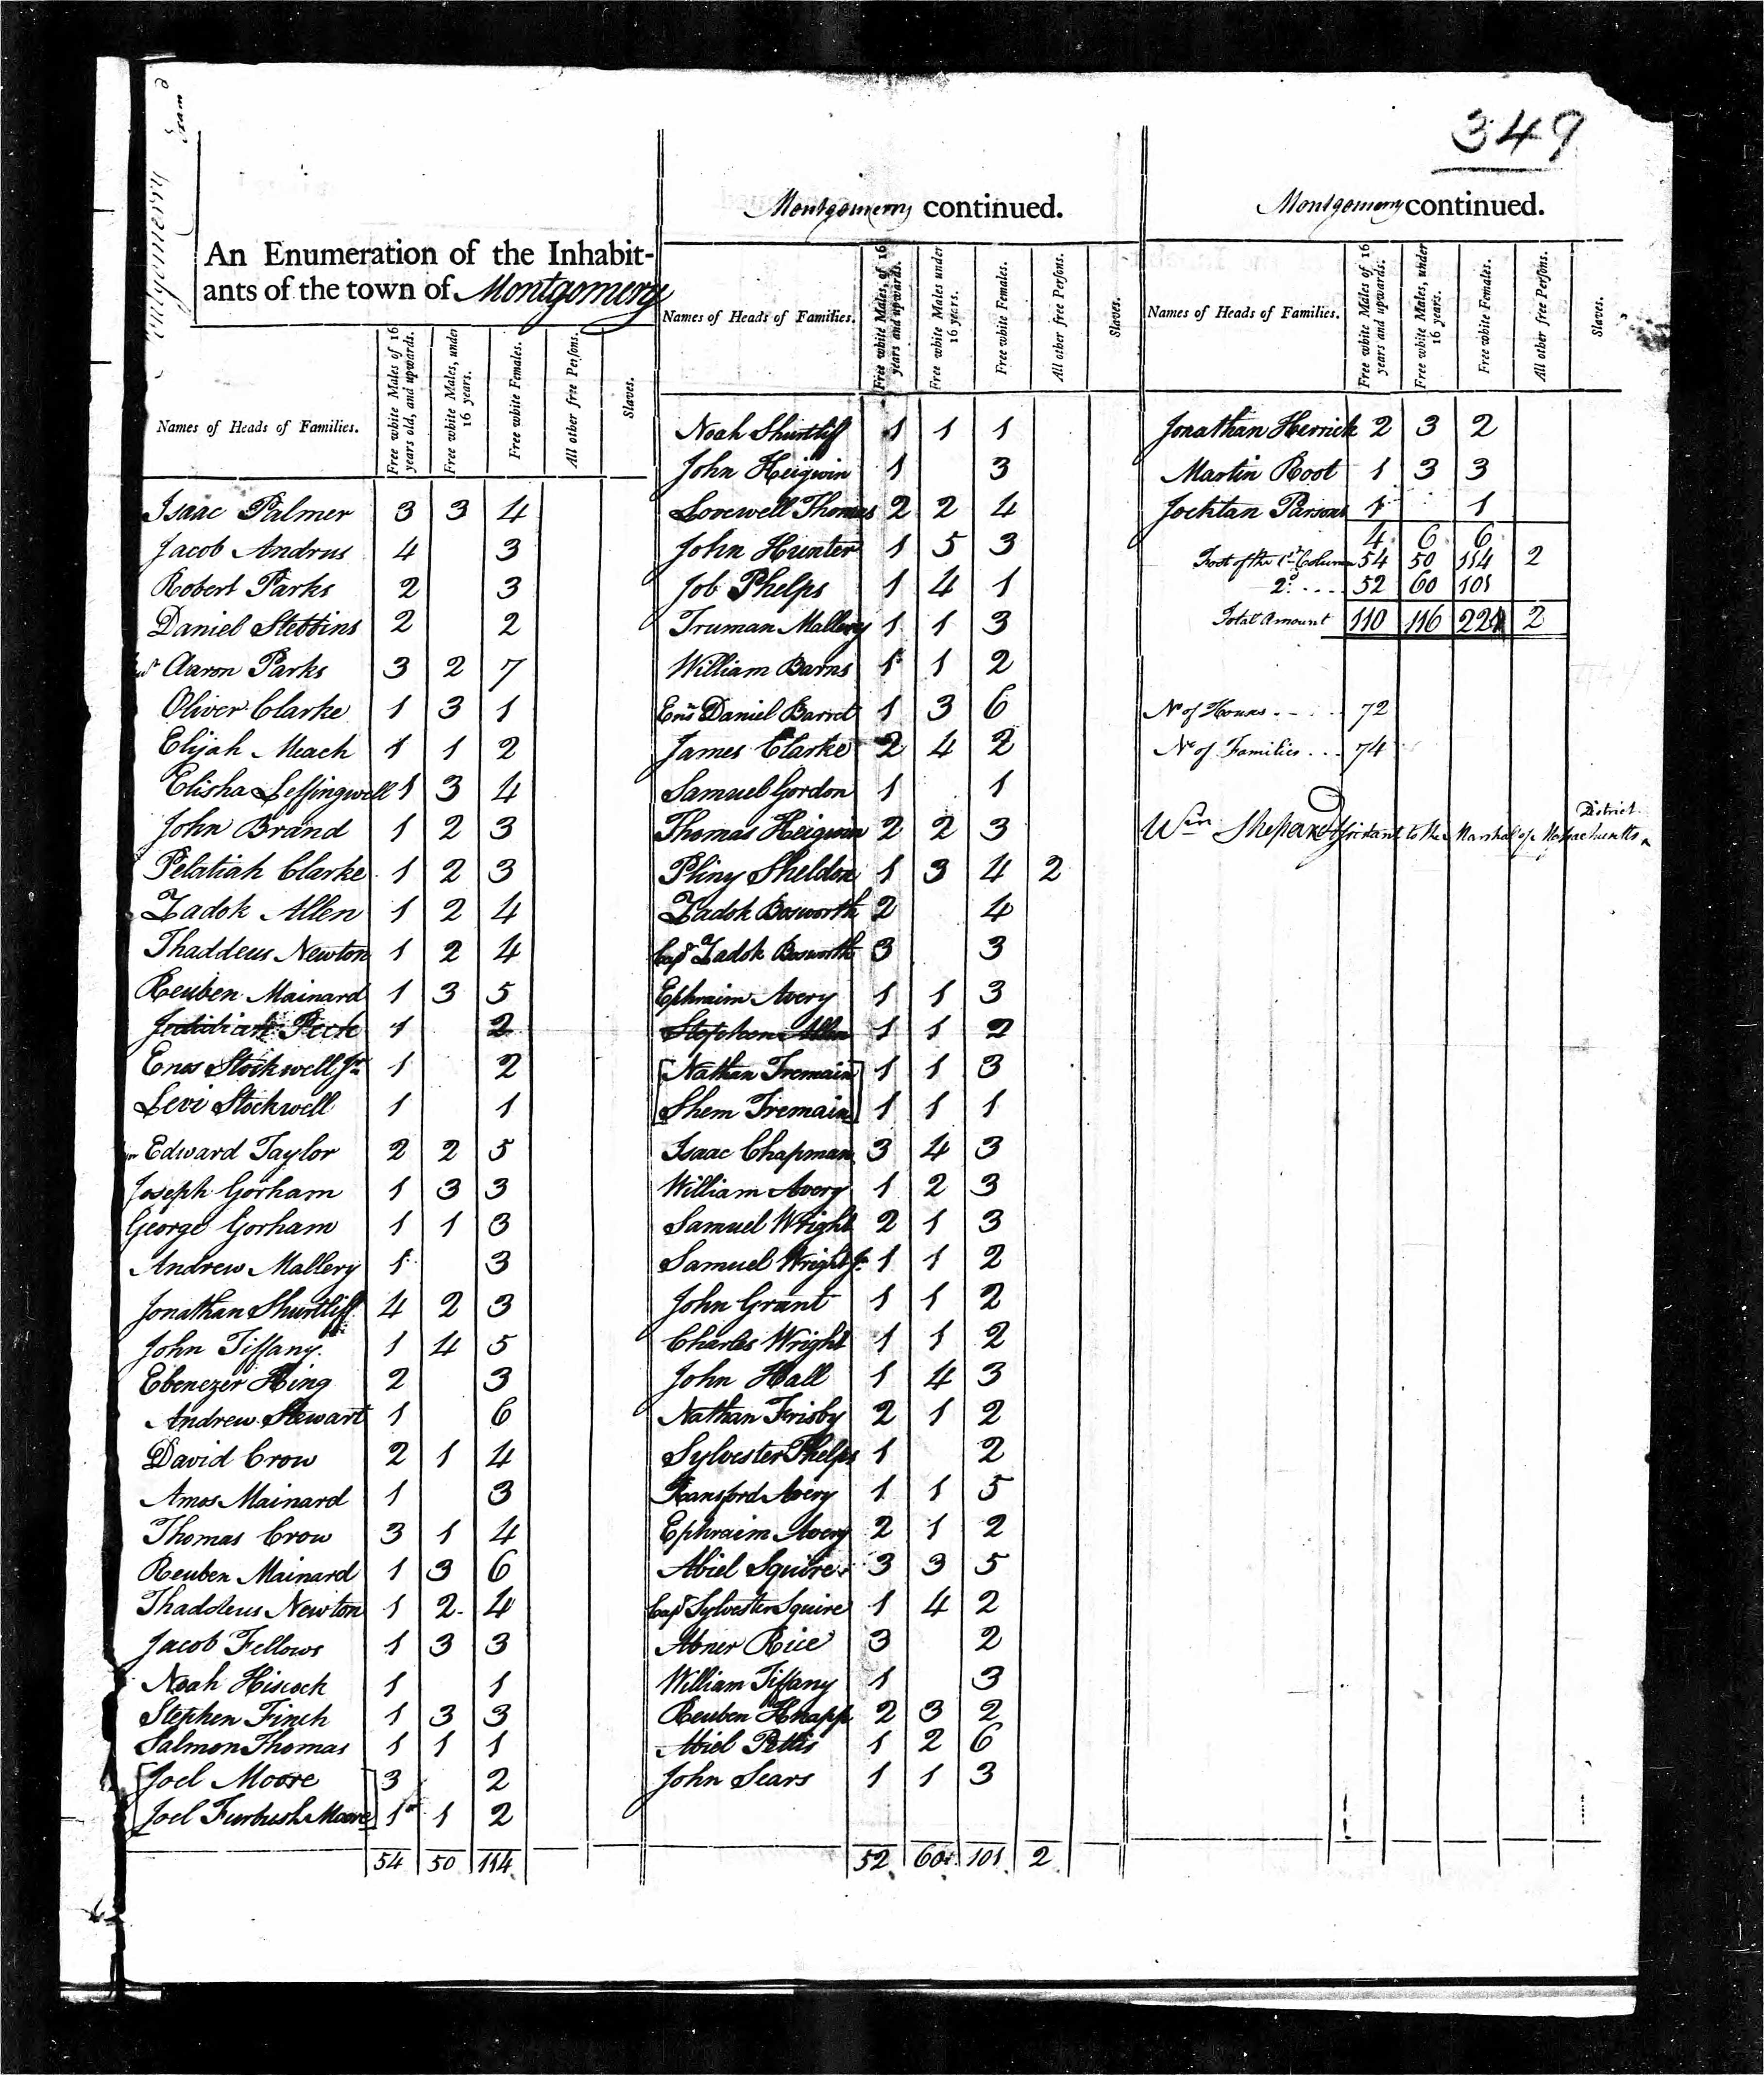 349
Montgomerry Exam d
An Enumeration of the Inhabit-
ants of the town of Montgomery
Names of Heads of Families.
Free white Males of 16 years old, and upwards.
Free white Males, under 16 years.
Free white Females.
All other free Persons.
Slaves.
Isaac Palmer 3 3 4
Jacob Andrus 4 3
Robert Parks 2 3
Daniel Stebbins 2 2
Aaron Parks 3 2 7
Oliver Clarke 1 3 1
Elijah Meach 1 1 2
Elisha Leffingwell 1 3 4
John Brand 1 2 3
Pelatiah Clarke 1 2 3
Zadok Allen 1 2 4
Thaddeus Newton 1 2 4
Reuben Mainard 1 3 5
Jedidiah Peck 1 2
Enos Stockwell Jr 1 2
Levi Stockwell 1 1
Edward Taylor 2 2 5
Joseph Gorham 1 3 3
George Gorham 1 1 3
Andrew Mallery 1 3
Jonathan Shurtliff 4 2 3
John Tiffany 1 4 5
Ebenezer King 2 3
Andrew Stewart 1 6
David Crow 2 1 4
Amos Mainard 1 3
Thomas Crow 3 1 4
Reuben Mainard 1 3 6
Thaddeus Newton 1 2 4
Jacob Fellows 1 3 3
Noah Hiscock 1 1
Stephen Finch 1 3 3
Salmon Thomas 1 1 1
Joel Moore 3 2
Joel Furbush Moore 1 1 2
54 50 114
Montgomery continued.
Names of Heads of Families.
Free white Males, of 16 years and upwards.
Free white Males under 16 years.
Free white Females.
All other free Persons.
Slaves.
Noah Shurtlif 1 1 1
John Heigwin 1 3
Lovewell Thomas 2 2 4
John Hunter 1 5 3
Job Phelps 1 4 1
Truman Mallery 1 1 3
William Barns 1 1 2
Ens Daniel Barret 1 3 6
James Clarke 2 4 2
Samuel Gordon 1 1
Thomas Heigwin 2 2 3
Pliny Sheldon 1 3 4 2
Zadok Bosworth 2 4
Capt Zadok Bosworth 3 3
Ephraim Avery 1 1 3
Stephen Allen 1 1 2
Nathan Tremain 1 1 3
Shem Tremain 1 1 1
Isaac Chapman 3 4 3
William Avery 1 2 3
Samuel Wright 2 1 3
Samuel Wright Jr 1 1 2
John Grant 1 1 2
Charles Wright 1 1 2
John Hall 1 4 3
Nathan Frisby 2 1 2
Sylvester Phelps 1 2
Ransford Avery 1 1 5
Ephraim Avery 2 1 2
Abiel Squire 3 3 5
Capt Sylvester Squire 1 4 2
Abner Rice 3 2
William Tiffany 1 3
Reuben Knapp 2 3 2
Abiel Pettis 1 2 6
John Sears 1 1 3
52 60 101 2
Montgomery continued.
Names of Heads of Families.
Free white Males of 16 years and upwards.
Free white Males, under 16 years.
Free white Females.
All other free Persons.
Slaves.
Jonathan Herrick 2 3 2
Martin Root 1 3 3
Jocktan Parsons 1 1
4 6 6
Foot of the 1st Column 54 50 114 2
2d .... 52 60 101
Total Amount 110 116 221 2
No of Houses .... 72
No of Families ... 74
Wm Shepard Assistant to the Marshal of Massachusetts District